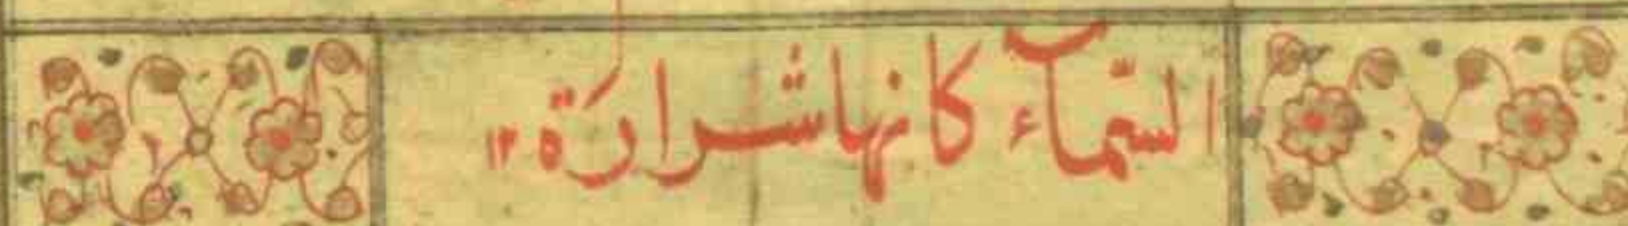 السّمآء كانها شرارة ١٢